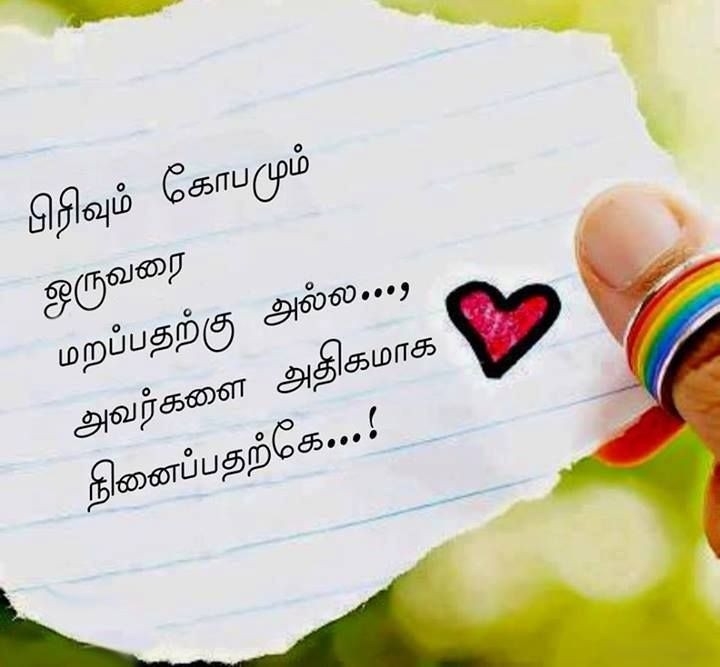 பிரிவும் கோபமும்
ஒருவரை
மறப்பதற்கு அல்ல...,
அவர்களை அதிகமாக
நினைப்பதற்கே...!